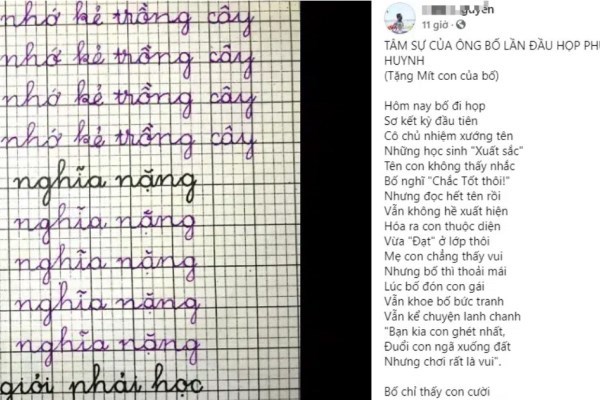 nhớ kẻ trồng cây
nhớ kẻ trồng cây
nhớ kẻ trồng cây
nhớ kẻ trồng cây
nghĩa nặng
nghĩa nặng
nghĩa nặng
nghĩa nặng
nghĩa nặng
giỏi phải học
guyễn
11 giờ
TÂM SỰ CỦA ÔNG BỐ LẦN ĐẦU HỌP
HUYNH
(Tặng Mít con của bố)
Hôm nay bố đi họp
Sơ kết kỳ đầu tiên
Cô chủ nhiệm xướng tên
Những học sinh "Xuất sắc"
Tên con không thấy nhắc
Bố nghĩ "Chắc Tốt thôi!"
Nhưng đọc hết tên rồi
Vẫn không hề xuất hiện
Hóa ra con thuộc diện
Vừa "Đạt" ở lớp thôi
Mẹ con chẳng thấy vui
Nhưng bố thì thoải mái
Lúc bố đón con gái
Vẫn khoe bố bức tranh
Vẫn kể chuyện lanh chanh
"Bạn kia con ghét nhất,
Đuổi con ngã xuống đất
Nhưng chơi rất là vui".
Bố chỉ thấy con cười